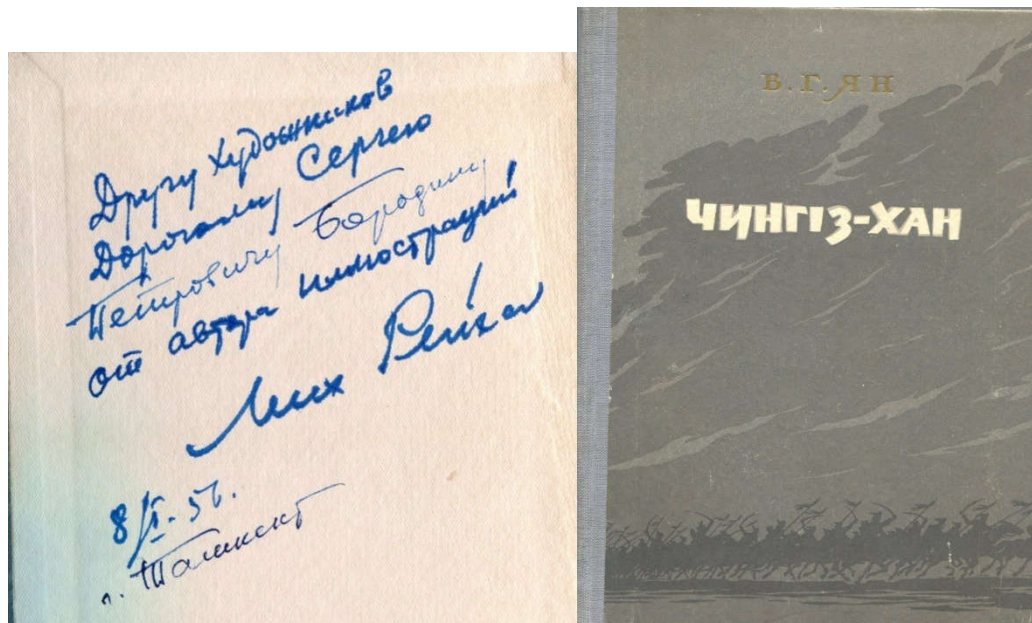 Другу художников
Дорогому Сергею
Петровичу Бородину
от автора иллюстраций!
Мих Рейх
8/I-56.
г. Ташкент
В. Г. ЯН
ЧИНГІЗ-ХАН